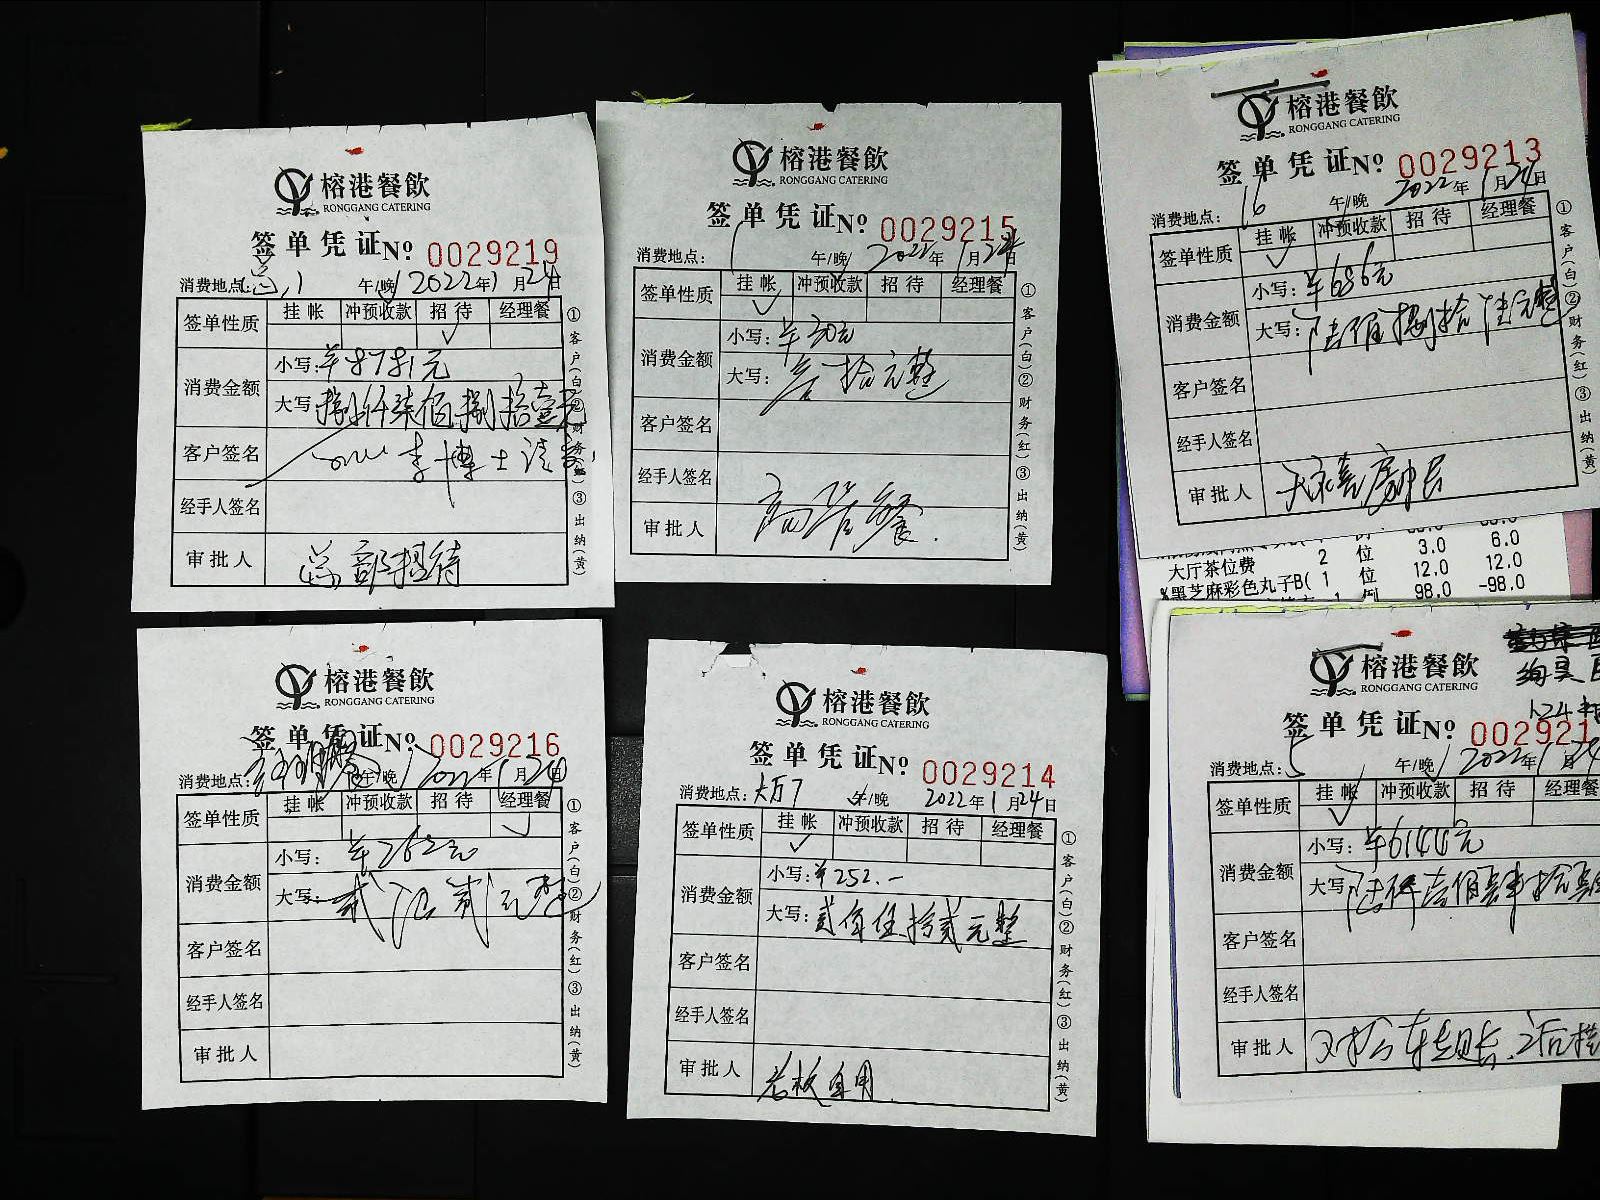 榕港餐飲
RONGGANG CATERING
签单凭证 № 0029219
消费地点: 总,1 午/晚 2022年1月24日
签单性质 挂帐 冲预收款 招待 经理餐
✓
消费金额 小写: ¥8781元
大写: 捌仟柒佰捌拾壹元
客户签名 李博士请客
经手人签名
审批人 总部招待
①客户(白)②财务(红)③出纳(黄)
榕港餐飲
RONGGANG CATERING
签单凭证 № 0029215
消费地点: 午/晚 2022年1月24日
签单性质 挂帐 冲预收款 招待 经理餐
✓
消费金额 小写: ¥30元
大写: 叁拾元整
客户签名
经手人签名
审批人 高管餐
①客户(白)②财务(红)③出纳(黄)
榕港餐飲
RONGGANG CATERING
签单凭证 № 0029213
消费地点: 16 午/晚 2022年1月24日
签单性质 挂帐 冲预收款 招待 经理餐
✓
消费金额 小写: ¥686元
大写: 陆佰捌拾陆元整
客户签名
经手人签名
审批人
①客户(白)②财务(红)③出纳(黄)
3.0 6.0
大厅茶位费 2 位 12.0 12.0
黑芝麻彩色丸子B( 1 例 98.0 -98.0
榕港餐飲
RONGGANG CATERING
签单凭证 № 0029216
消费地点: 午/晚 2022年1月24日
签单性质 挂帐 冲预收款 招待 经理餐
✓
消费金额 小写: ¥262元
大写:
客户签名
经手人签名
审批人
①客户(白)②财务(红)③出纳(黄)
榕港餐飲
RONGGANG CATERING
签单凭证 № 0029214
消费地点: 大厅7 午/晚 2022年1月24日
签单性质 挂帐 冲预收款 招待 经理餐
✓
消费金额 小写: ¥252.-
大写: 贰佰伍拾贰元整
客户签名
经手人签名
审批人 老板自用
①客户(白)②财务(红)③出纳(黄)
榕港餐飲
RONGGANG CATERING
签单凭证 № 002921
消费地点: 5 午/晚 2022年1月24
签单性质 挂帐 冲预收款 招待 经理餐
✓
消费金额 小写: ¥6144元
大写: 陆仟壹佰肆拾肆
客户签名
经手人签名
审批人